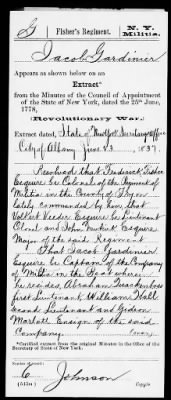 G
Fisher's Regiment.
N. Y.
Militia.
Jacob Gardinier
Appears as shown below on an
Extract*
from the Minutes of the Council of Appointment
of the State of New York, dated the 25th June,
1778,
(Revolutionary War.)
Extract dated, State of New York Secretary's Office
City of Albany June 23, 1837.
Resolved that Frederick Fisher
Esquire be Colonel of the Regiment of
Militia in the County of Tryon
lately commanded by him, that
Volkert Veeder Esquire be Lieutenant
Colonel and John Esquire
Major of the said Regiment
That Jacob Gardinier
Esquire be Captain of the Company
of Militia in the Beat where
he resides, Abraham
first Lieutenant, William Hall
Second Lieutenant and Gideon
Marlatt Ensign of the said
Company.
*Certified extract from the original Minutes in the Office of the
Secretary of State of New York.
Number of record:
6
Johnson
Copyist.